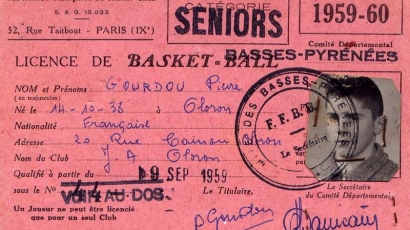 S. A. G. 15.033
52, Rue Taitbout - PARIS (IXe)
CATÉGORIE
SENIORS
1959-60
Comité Départemental
BASSES-PYRÉNÉES
LICENCE DE BASKET-BALL
NOM et Prénoms GOURDOU Pierre
(en majuscules)
Né le 14-10-36 à Oloron
Nationalité Française
Adresse 20 Rue Camou Oloron
Nom du Club J. A Oloron
Qualifié à partir du 19 SEP 1959
sous le No 44
VOIR AU DOS
Le Titulaire.
Un Joueur ne peut être licencié
que pour un seul Club
DES BASSES-PYRÉNÉES
F. F. B. B.
Le Secrétaire
Le Secrétaire
du Comité Départemental,